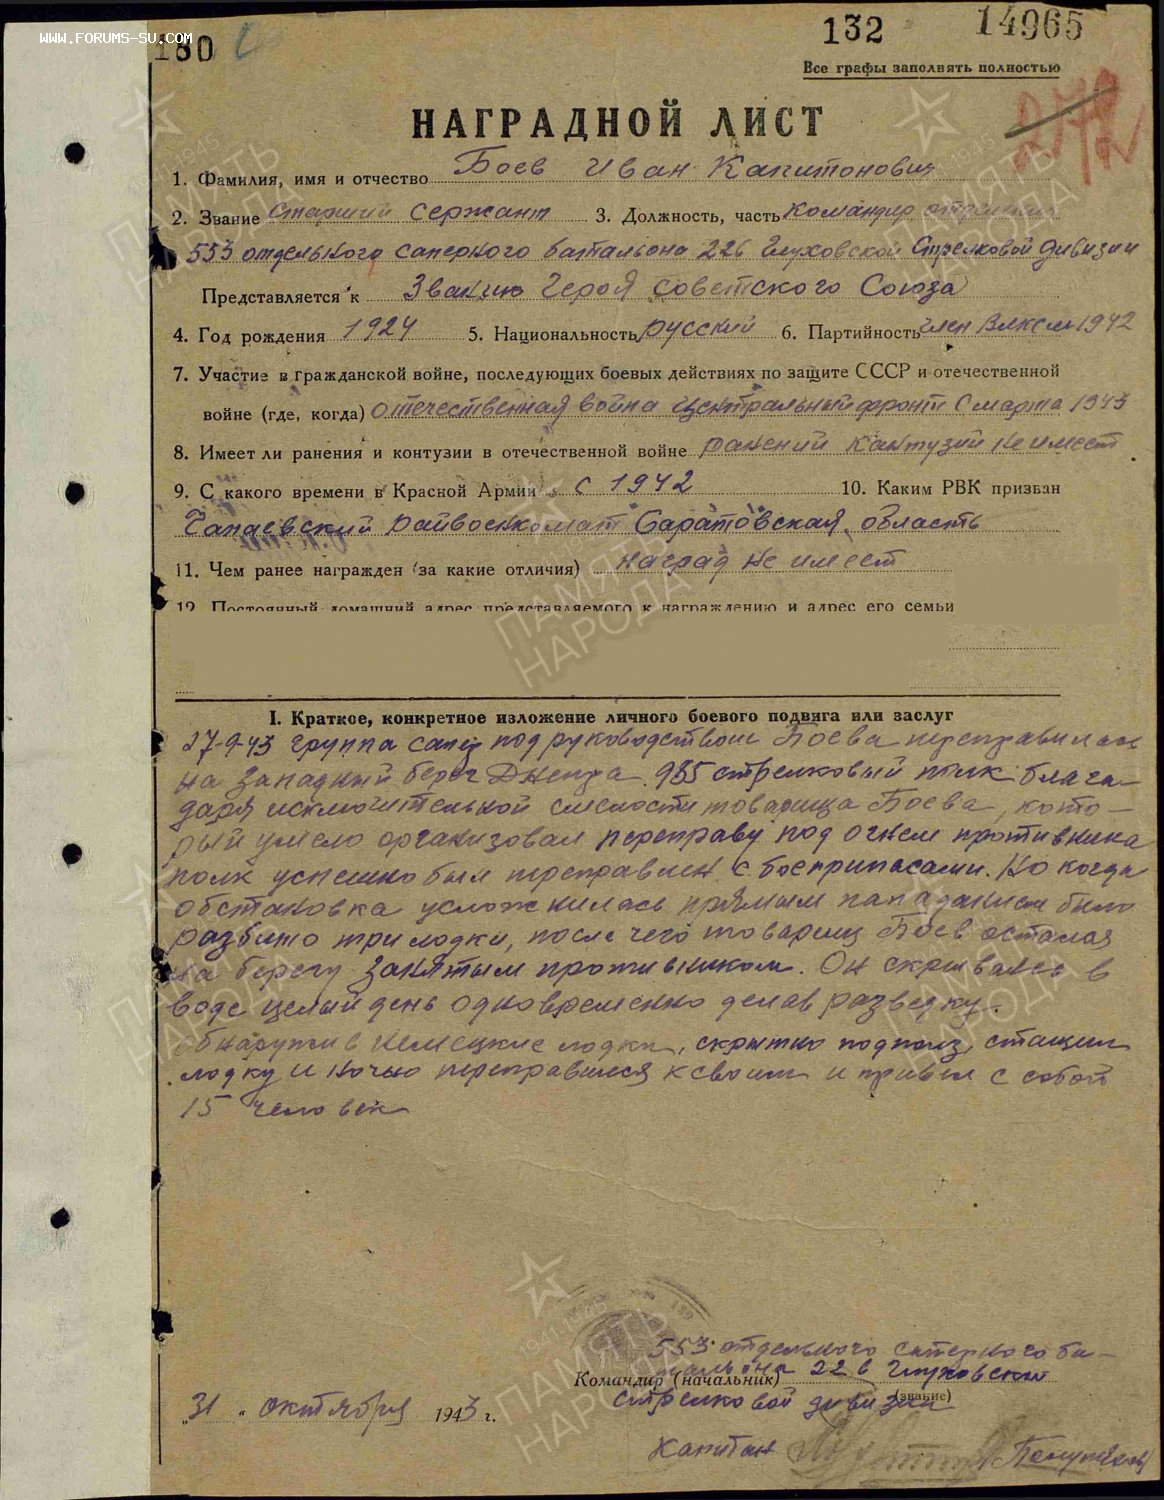 WWW.FORUMS-SU.COM
180
132
14965
Все графы заполнять полностью
272
НАГРАДНОЙ ЛИСТ
1. Фамилия, имя и отчество Боев Иван Капитонович
2. Звание Старший Сержант 3. Должность, часть Командир отделения
553 отдельного саперного батальона 226 Глуховской Стрелковой дивизии
Представляется к Званию Героя Советского Союза
4. Год рождения 1924 5. Национальность русский 6. Партийность член Влксм 1942
7. Участие в гражданской войне, последующих боевых действиях по защите СССР и отечественной
войне (где, когда) отечественная война Центральный фронт с марта 1943
8. Имеет ли ранения и контузии в отечественной войне ранений кантузий не имеет
9. С какого времени в Красной Армии с 1942 10. Каким РВК призван
Чапаевский райвоенкомат Саратовская область
11. Чем ранее награжден (за какие отличия) наград не имеет
12. Постоянный домашний адрес представляемого к награждению и адрес его семьи
I. Краткое, конкретное изложение личного боевого подвига или заслуг
27-9-43 группа сапер под руководством Боева переправилась
на западный берег Днепра. 985 стрелковый полк блага-
даря исключительной смелости товарища Боева, кото-
рый умело организовал переправу под огнем противника
полк успешно был переправлен с боеприпасами. Но когда
обстановка усложнилась прямым пападанием было
разбито три лодки, после чего товарищ Боев остался
на берегу занятым противником. Он скрываясь в
воде целый день одновременно делав разведку.
обнаружив немецкие лодки, скрытно подполз, стащил
лодку и ночью переправился к своим и привел с собой
15 человек
553 отдельного саперного ба-
тальона 226 Глуховской
Командир (начальник)
(звание)
стрелковой дивизии
„31" октября 1943 г.
Капитан
1941-1945
ПАМЯТЬ
НАРОДА